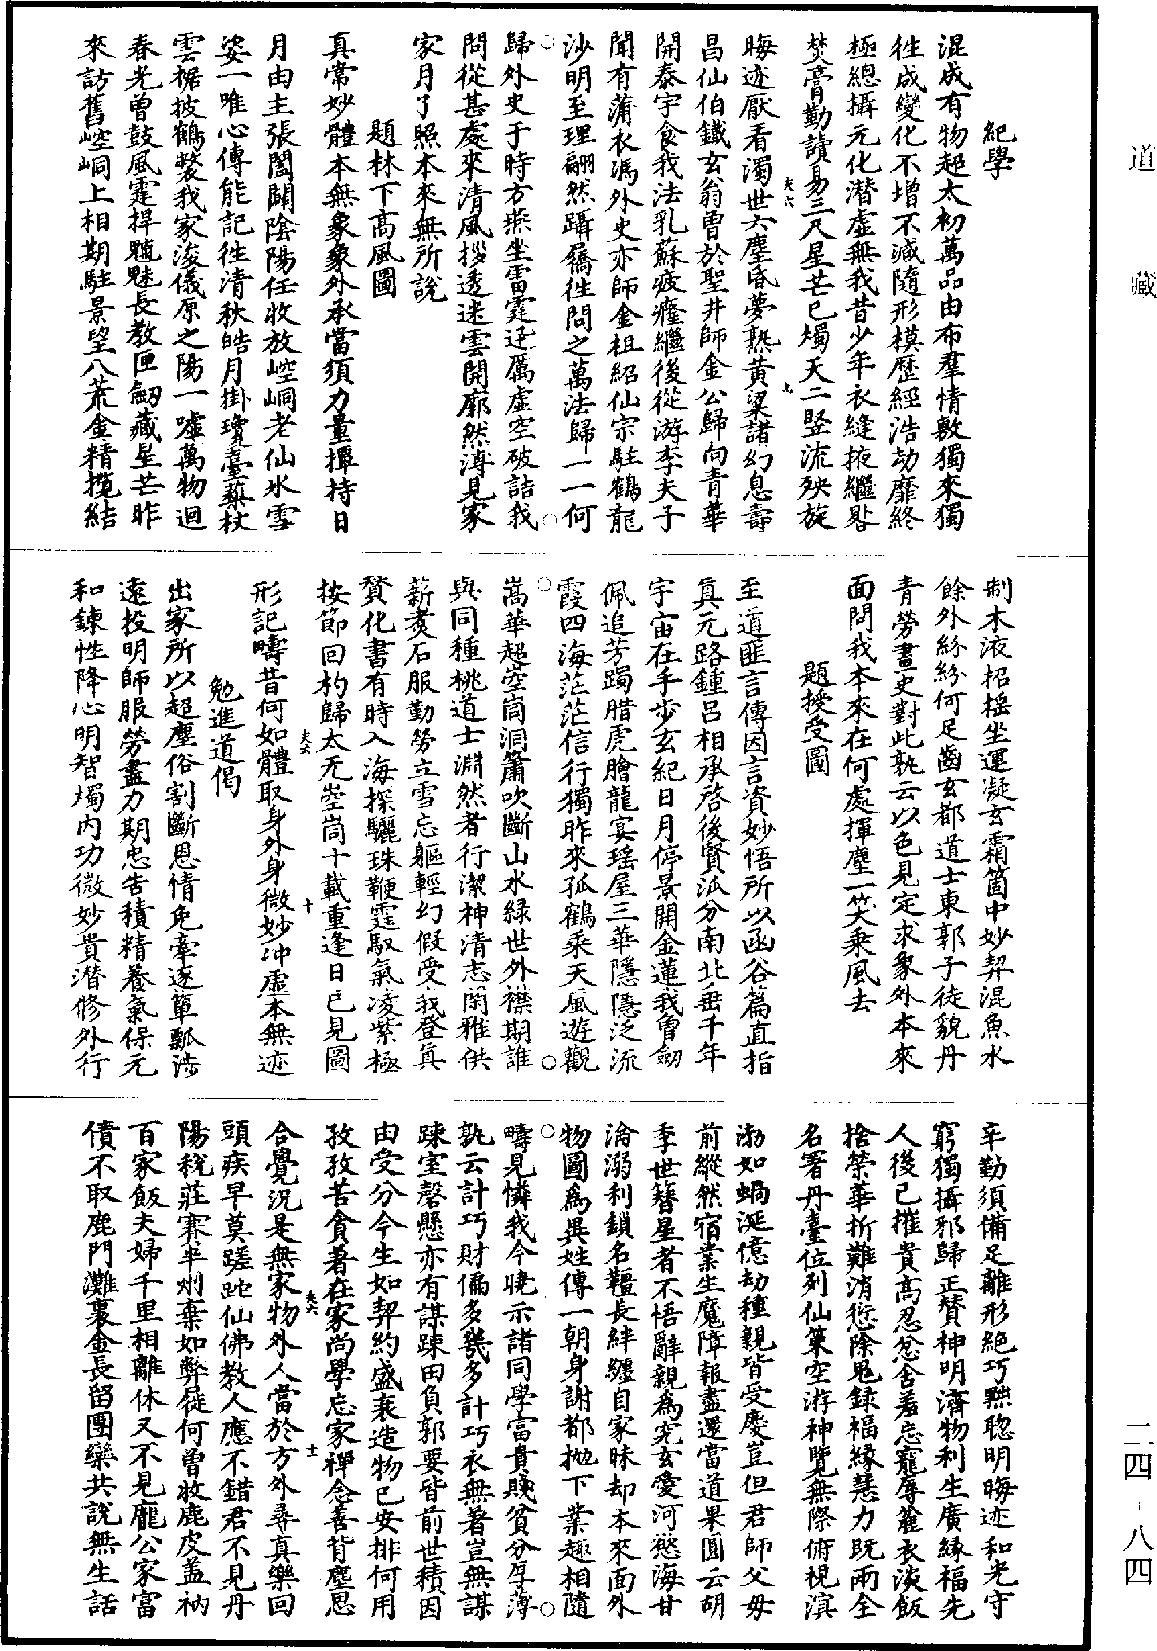 道藏
紀學
混成有物超太初萬品由布羣情敷獨來獨
徃成變化不增不減隨形模歷經浩劫靡終
極總攝元化潛虛無我昔少年衣縫掖繼晷
焚膏勤讀易三尺星芒已燭天二竪流殃旋
晦迹厭看濁世六塵昏夢熟黃粱諸幻息壽
昌仙伯鐵玄翁曾於聖井師金公歸向青華
開泰宇食我法乳蘇疲癃繼後從游李夫子
聞有蒲衣馮外史亦師金祖紹仙宗駐鶴龍
沙明至理翩然躡屩徃問之萬法歸一一何
歸外史于時方燕坐雷霆迅厲虛空破詰我
問從甚處來清風拶透迷雲開廓然溥見家
家月了照本來無所說
題林下高風圖
真常妙體本無象象外承當須力量撣持日
月由主張闔闢陰陽任收放崆峒老仙氷雪
姿一唯心傳能記徃清秋皓月掛瓊臺藜杖
雲裾披鶴氅我家浚儀原之陽一噓萬物迴
春光曾鼓風霆捍魑魅長教匣劒藏星芒昨
來訪舊崆峒上相期駐景望八荒金精攬結
制木液招搖坐運凝玄霜箇中妙契混魚水
餘外紛紛何足齒玄都道士東郭子徒貌丹
青勞畫史對此孰云以色見定求象外本來
面問我本來在何處揮麈一笑乘風去
題授受圖
至道匪言傳因言資妙悟所以函谷篇直指
真元路鍾呂相承啓後賢派分南北垂千年
宇宙在手步玄紀日月停景開金蓮我曾劒
佩追芳躅腊虎膾龍寅瑤屋三華隱隱泛流
霞四海茫茫信行獨昨來孤鶴乘天風遊觀
嵩華超空同洞簫吹斷山水綠世外襟期誰
與同種桃道士淵然者行潔神清志閑雅供
薪煑石服勤勞立雪忘軀輕幻假受我登真
贊化書有時入海探驪珠鞭霆馭氣凌紫極
按節回杓歸太无崆峒十載重逢日已見圖
形記疇昔何如體取身外身微妙冲虛本無迹
勉進道偈
出家所以超塵俗割斷恩情免牽逐簞瓢涉
遠投明師服勞盡力期忠告積精養氣保元
和鍊性降心明智燭內功微妙貴潛修外行
辛勤須備足離形絕巧黜聰明晦迹和光守
窮獨攝邪歸正賛神明濟物利生廣緣福先
人後己摧貢高忍忿舍羞忘寵辱麓衣淡飯
捨榮華折難消愆除鬼錄福緣慧力既兩全
名署丹臺位列仙策空游神覽無際俯視溟
渤如蝸涎億劫種親皆受慶豈但君師父母
前縱然宿業生魔障報盡還當道果圓云胡
季世簪星者不悟辭親為究玄愛河慾海甘
淪溺利鎖名韁長絆纏自家昧却本來面外
物圖為異姓傳一朝身謝都抛下業趣相隨
疇見憐我今曉示諸同學富貴賤貧分厚薄
孰云計巧財偏多幾多計巧衣無著豈無謀
踈室磬懸亦有謀踈田負郭要皆前世積因
由受分今生如契約盛衰造物已安排何用
孜孜苦貪著在家尚學忘家禪念善背塵思
合覺況是無家物外人當於方外尋真樂回
頭疾早莫蹉跎仙佛教人應不錯君不見丹
陽稅莊寨半州棄如弊屣何曾收鹿皮盖衲
百家飯夫婦千里相離休又不見龐公家富
債不取鹿門灘裏金長留團欒共說無生話
二四-八四